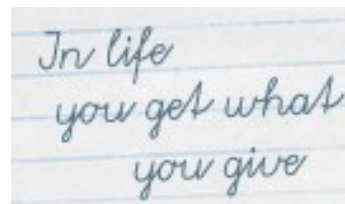 In life
you get what
you give